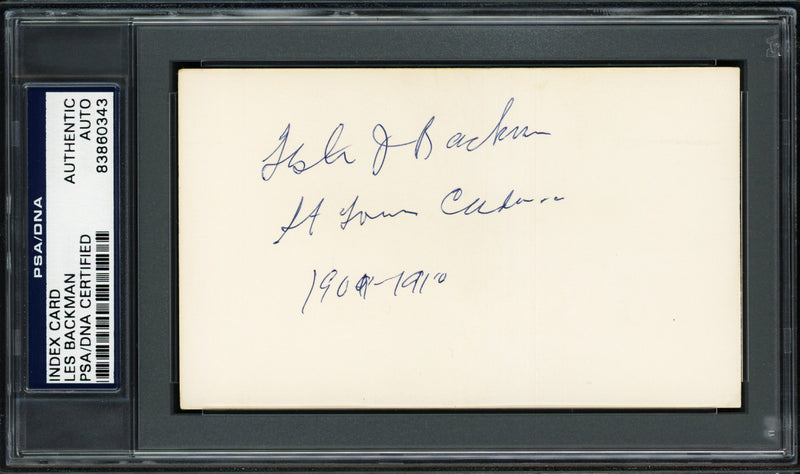 PSA/DNA
INDEX CARD
LES BACKMAN
PSA/DNA CERTIFIED
AUTHENTIC
AUTO
83860343
Lester J Backman
St Louis Cardinals
1909-1910